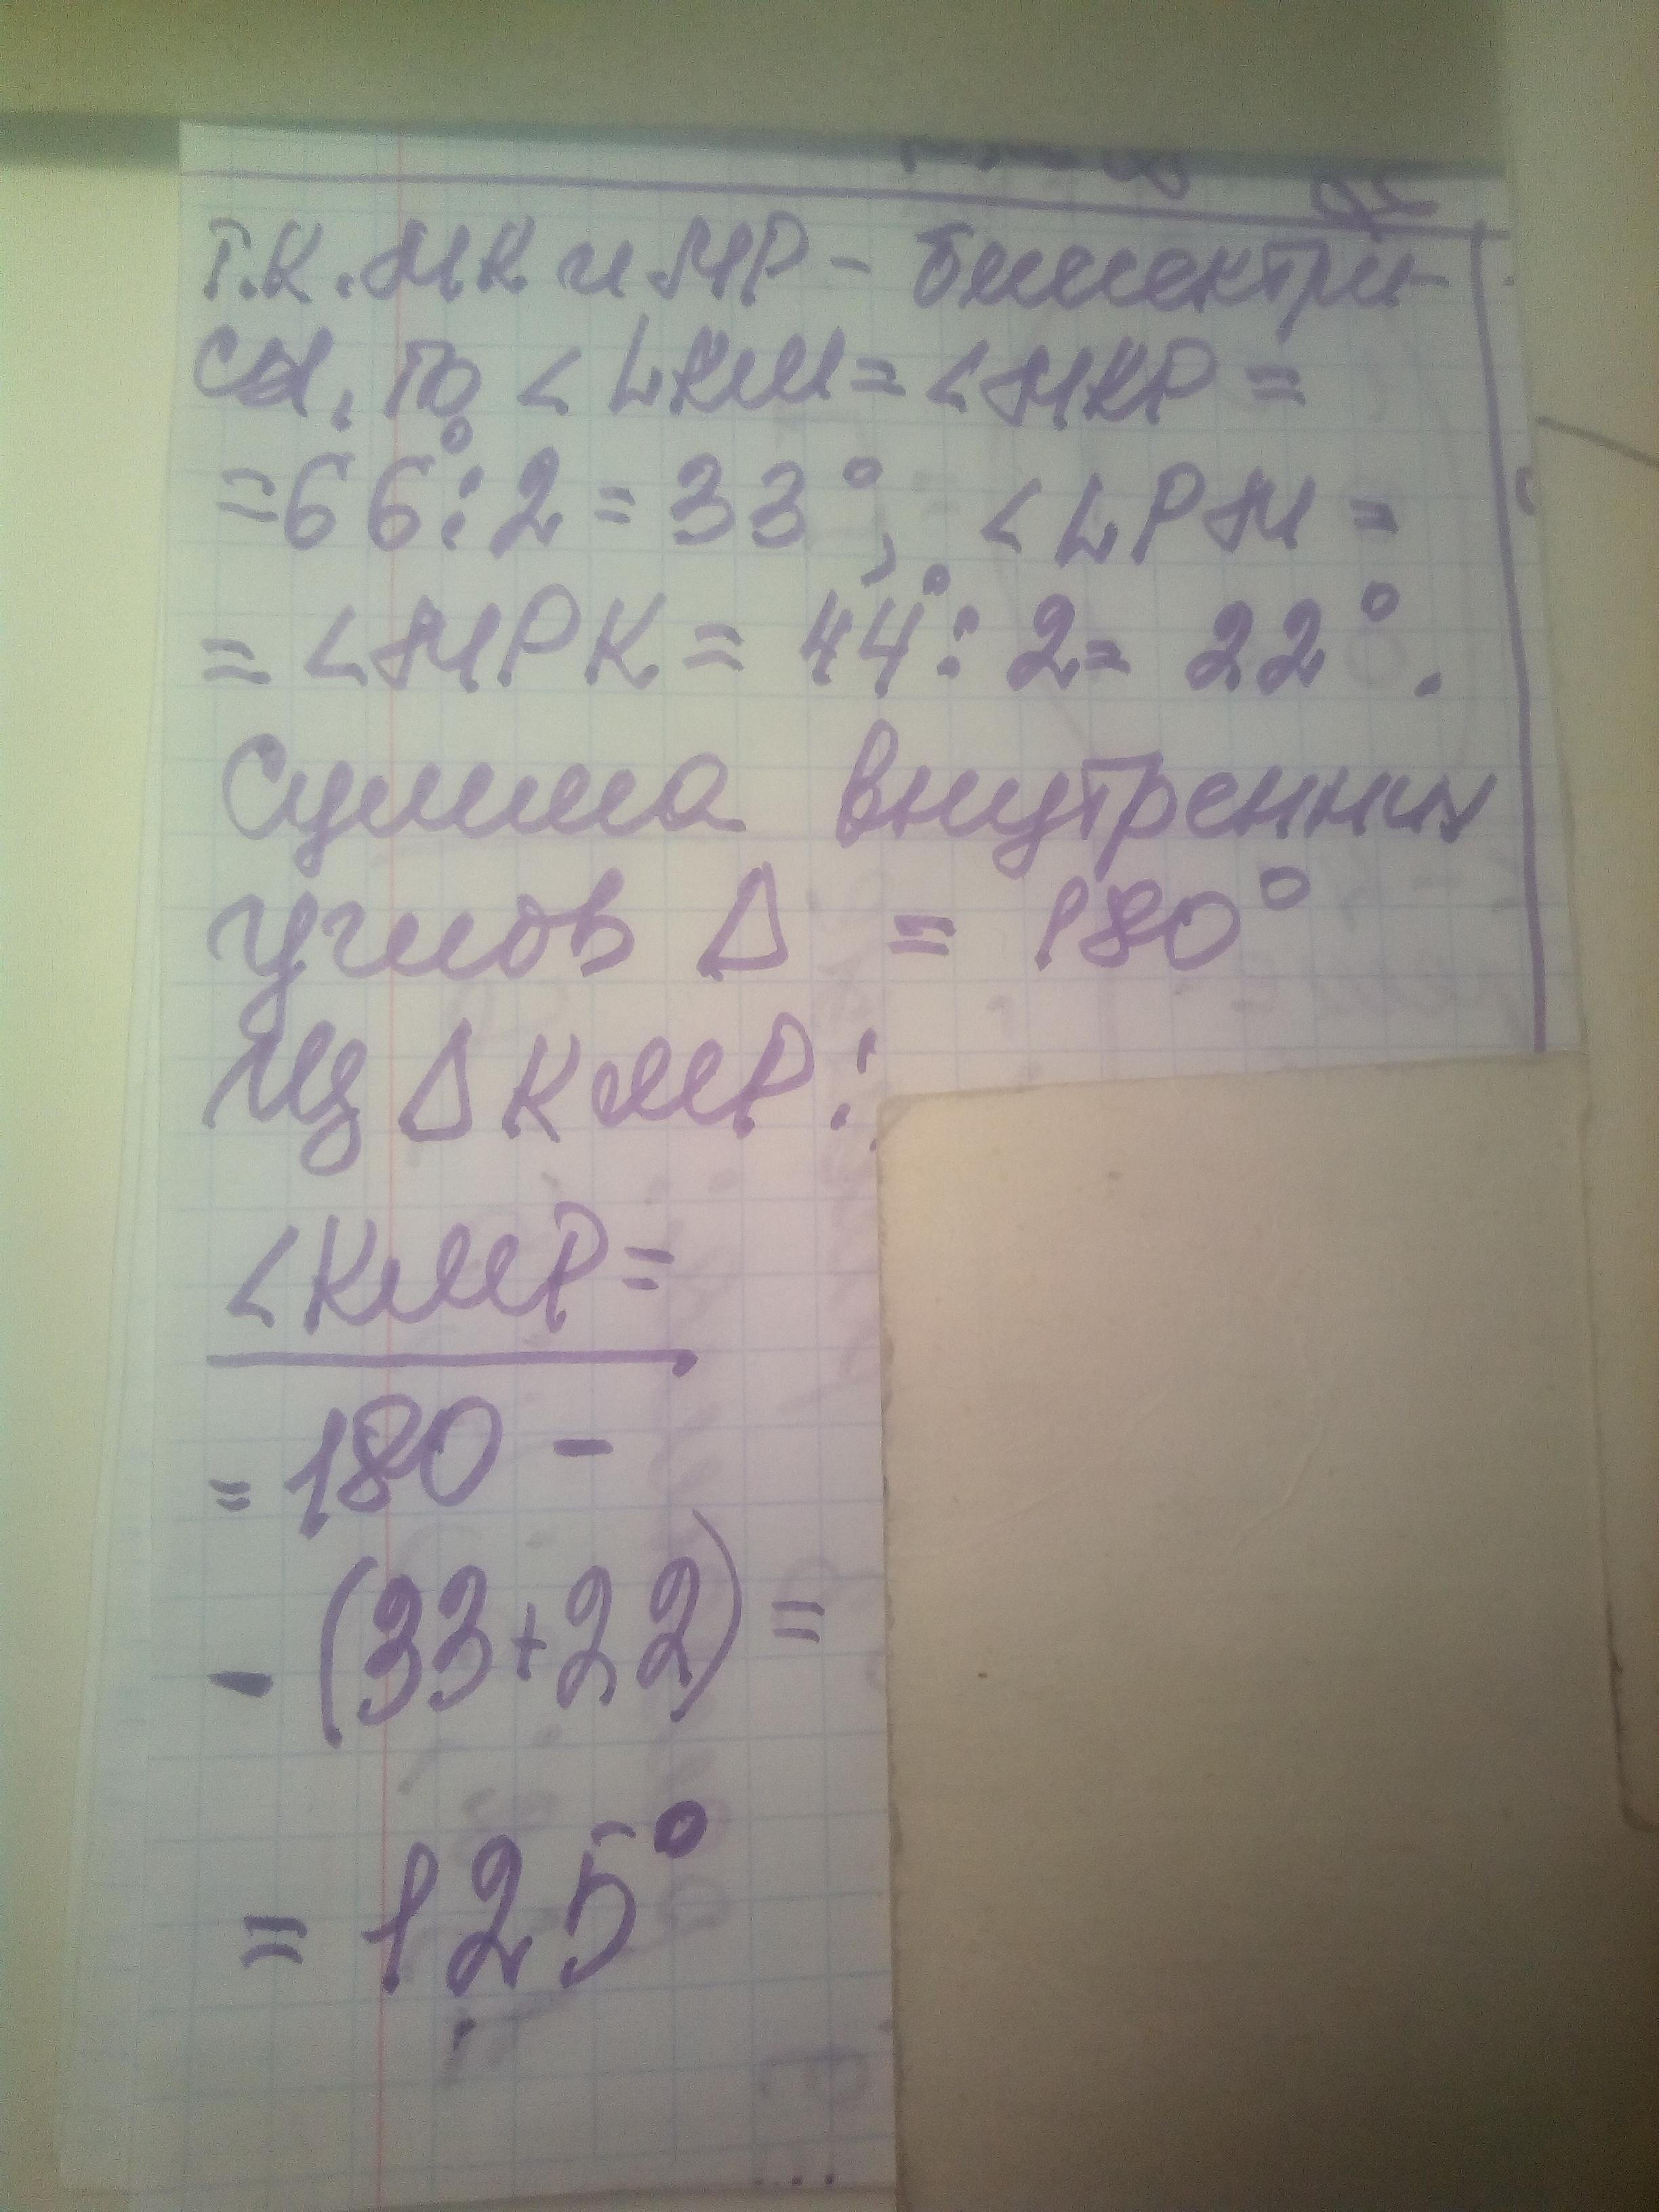 т.к. МК и МР - биссектри-
сы, то < LКМ = < МКР =
= 66° : 2 = 33°, < LРМ =
= < МРК = 44° : 2 = 22°.
Сумма внутренних
углов Δ = 180°
Из Δ КМР:
< КМР =
= 180 -
- (33+22) =
= 125°